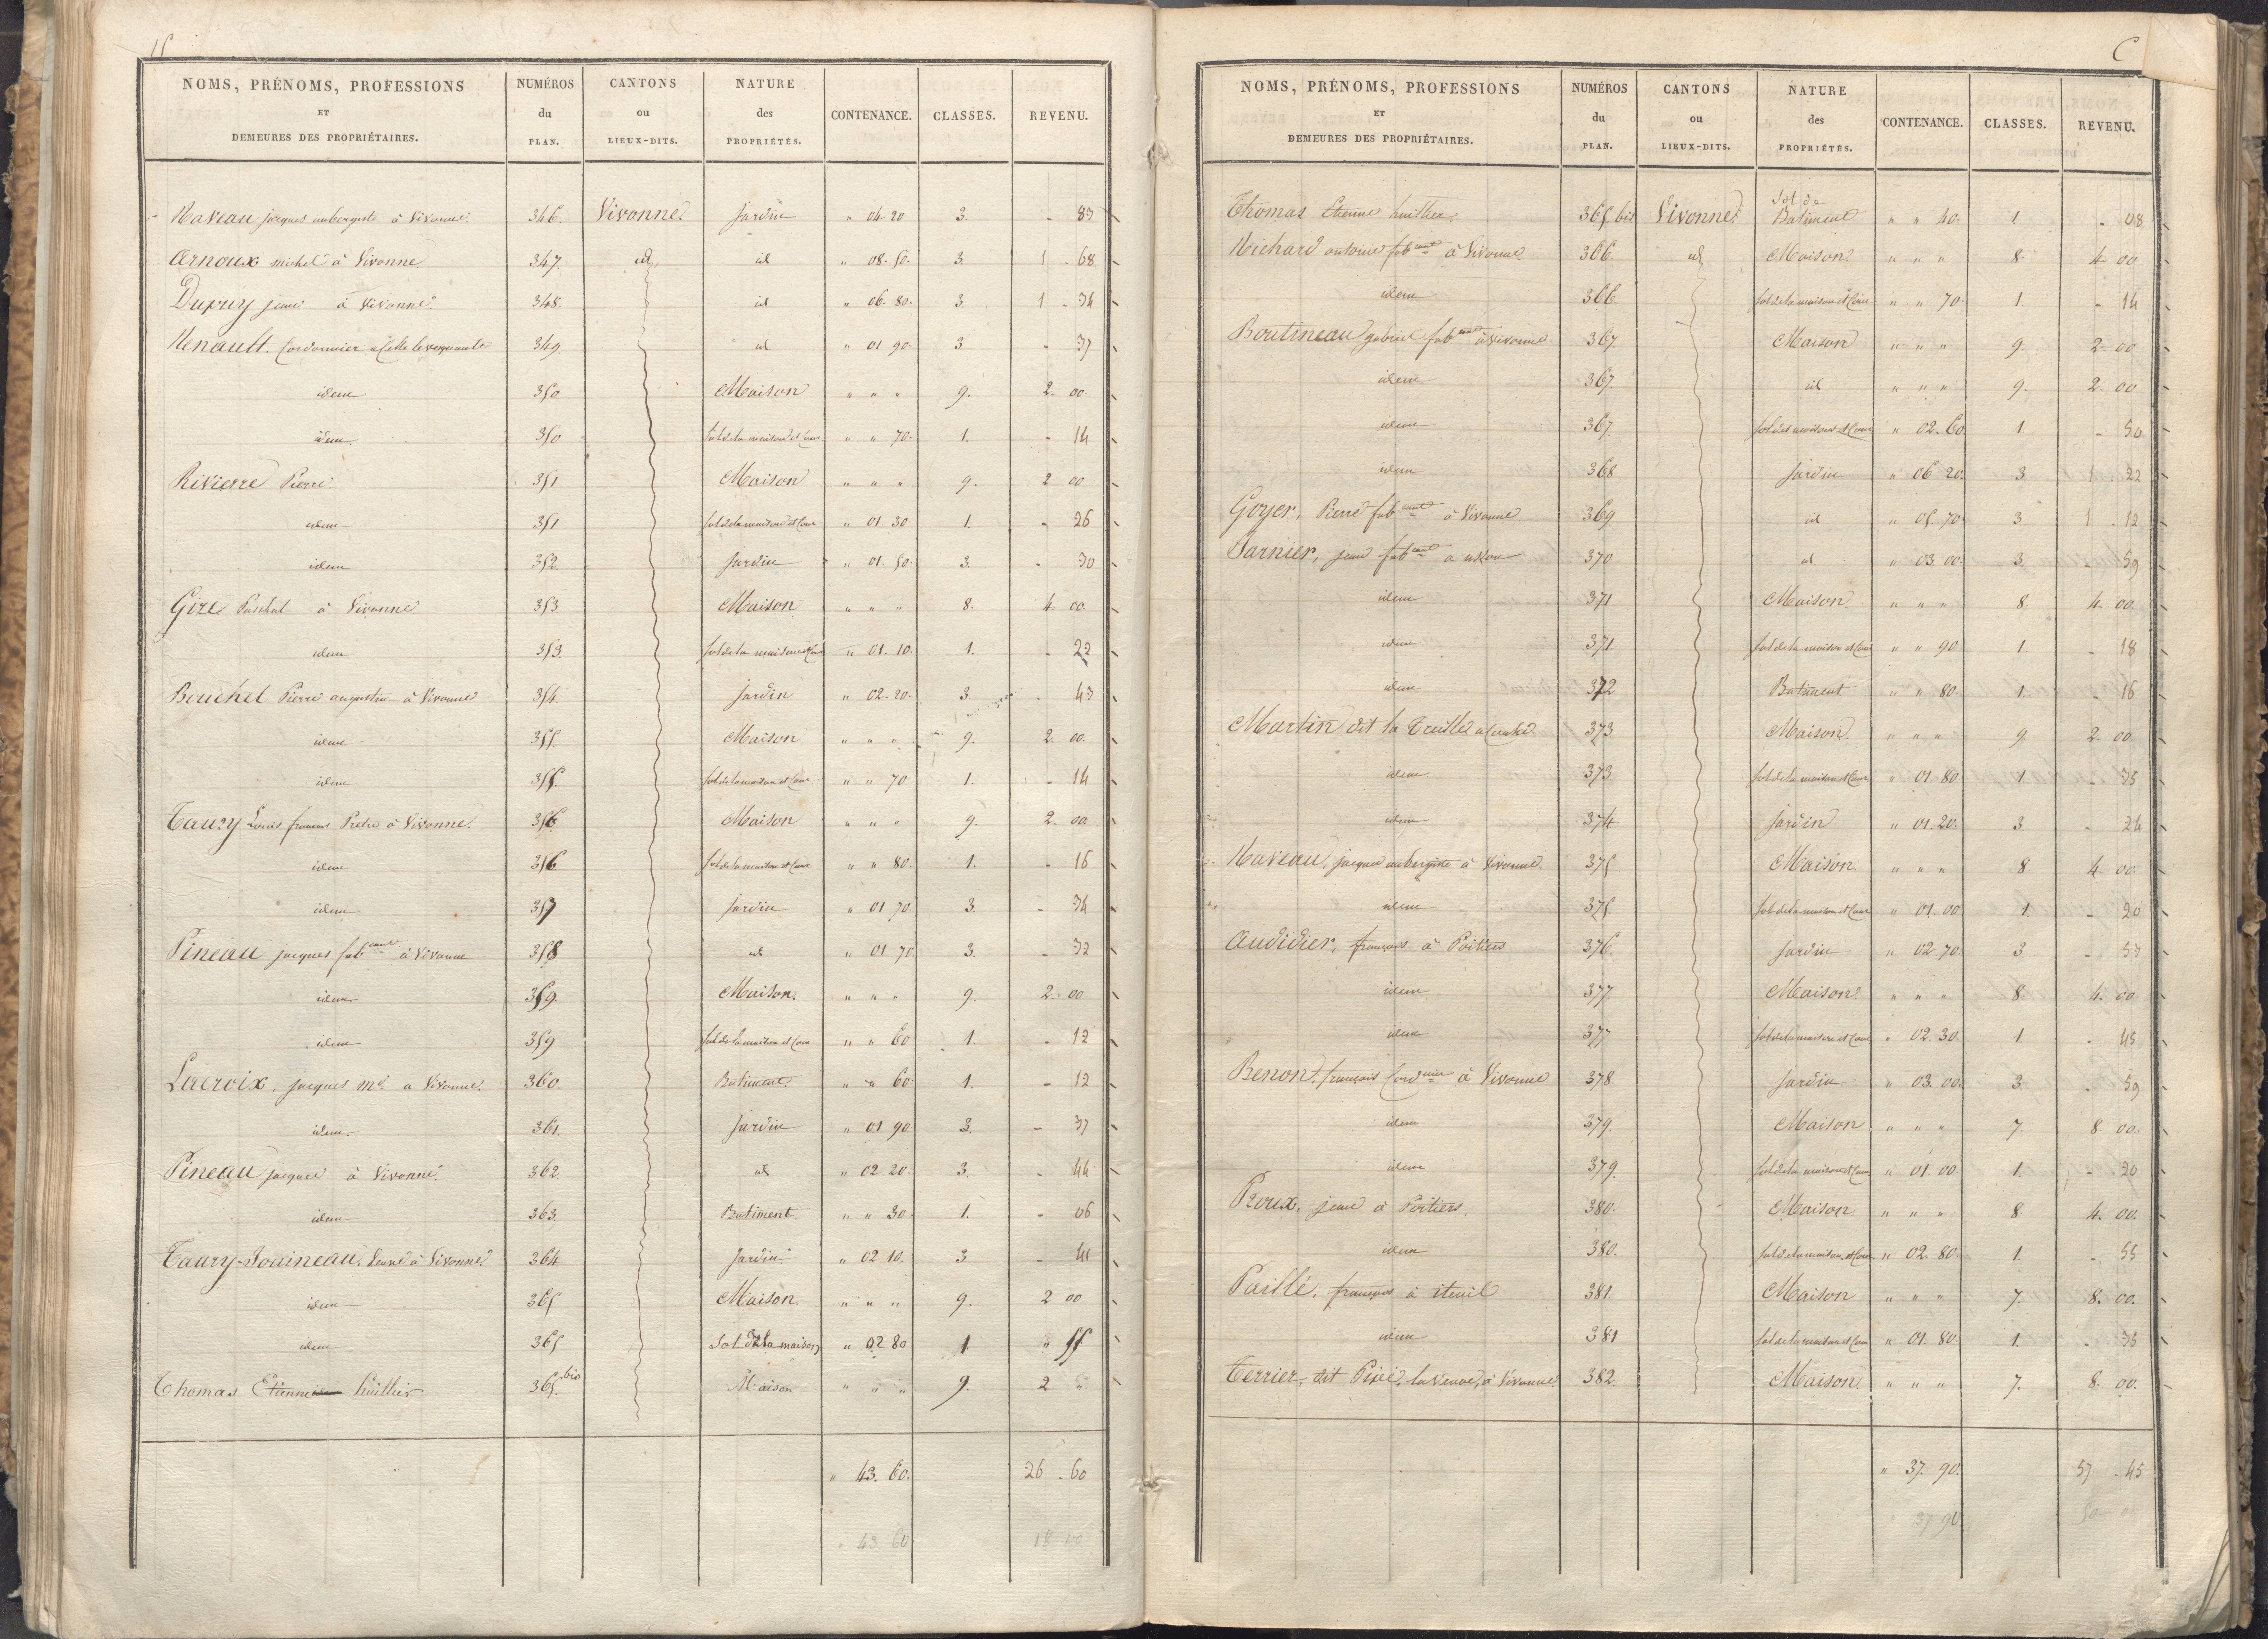 NOMS, PRÉNOMS, PROFESSIONS ET DEMEURES DES PROPRIÉTAIRES. NUMÉROS du PLAN. CANTONS ou LIEUX-DITS. NATURE des PROPRIÉTÉS. CONTENANCE. CLASSES. REVENU.
Naveau jacques aubergiste à Vivonne 346. Vivonne jardin " 04 20 3. - 83
Arnoux michel à Vivonne 347. id id " 08. 50. 3. 1 - 68
Dupuy jean à Vivonne 348. id " 06. 80. 3. 1 - 34
Renault. Cordonnier a Celle levequault 349. id " 01 90. 3. - 37
idem 350 Maison " " " 9. 2. 00
idem 350 sol de la maison et Cour " " 70. 1. - 14
Rivierre Pierre 351 Maison " " " 9. 2 00
idem 351 sol de la maison et Cour " 01. 30 1. - 26
idem 352 jardin " 01. 50. 3. - 30
Gire Paschal à Vivonne 353 Maison " " " 8. 4. 00
idem 353. sol de la maison et Cour " 01. 10. 1. - 22
Bouchet Pierre augustin à Vivonne 354 jardin " 02. 20. 3. - 43
idem 355 Maison " " " 9. 2. 00.
idem 355 sol de la maison et Cour " " 70 1. - 14
Taury Louis francois Pretre à Vivonne. 356 Maison " " " 9. 2. 00
idem 356 sol de la maison et Cour " " 80. 1. - 16
idem 357 jardin " 01 70. 3. - 34
Pineau jacques fabcant à Vivonne 358 id " 01 70. 3. - 32
idem 359 Maison. " " " 9. 2. 00
idem 359 sol de la maison et Cour " " 60 1. - 12
Lacroix, jacques md a Vivonne. 360. Batiment. " " 60. 1. - 12
idem 361. jardin " 01 90. 3. - 37
Pineau jacques à Vivonne 362. id " 02 20. 3. - 44
idem 363. Batiment. " " 30. 1. - 06
Taury-Souineau. Veuve à Vivonne 364 jardin " 02 10. 3 - 41
idem 365 Maison. " " " 9. 2 00
idem 365 Sol de la maison " 02 80 1 " 55
Thomas Etienne huillier 365. bis Maison " " " 9. 2 "
" 43. 60. 26 - 60
" 43 60 18 00
C
NOMS, PRÉNOMS, PROFESSIONS ET DEMEURES DES PROPRIÉTAIRES. NUMÉROS du PLAN. CANTONS ou LIEUX-DITS. NATURE des PROPRIÉTÉS. CONTENANCE. CLASSES. REVENU.
Thomas Etienne huillier. 365 bis Vivonne Sol de Batiment " " 40. 1. - 08
Richard antoine fabcant à Vivonne 366 id Maison " " " 8. 4. 00
idem 366. sol de la maison et Cour " " 70. 1. - 14
Boutineau gabriel fabcant à Vivonne 367. Maison " " " 9. 2. 00
idem 367. id " " " 9. 2. 00
idem 367. sol des maisons et Cour " 02. 60. 1 - 50
idem 368 jardin " 06 20. 3 1 22
Goyer, Pierre fabcant à Vivonne 369 id " 05. 70. 3 1 - 12
Garnier, jean fabcant a 370 id " 03. 00. 3 - 59
idem 371 Maison " " " 8 4. 00
idem 371 sol de la maison et Cour " " 90. 1. - 18
idem 372 Batiment " " 80. 1. - 16
Martin dit la Treille a 373 Maison " " " 9 2. 00
idem 373 sol de la maison et Cour " 01 80 1 - 35
idem 374 jardin " 01. 20. 3 - 24
Naveau, jacques aubergiste à Vivonne. 375 Maison. " " " 8 4. 00
idem 375 sol de la maison et Cour " 01. 00 1. - 20
Audidier, francois à Poitiers 376. jardin " 02. 70. 3 - 53
idem 377 Maison " " " 8. 4. 00
idem 377 sol de la maison et Cour " 02. 30. 1 - 45
Benon, francois Cordnier à Vivonne 378 jardin " 03. 00. 3. - 59
idem 379. Maison " " " 7. 8. 00
idem 379. sol de la maison et Cour " 01. 00 1. - 20
Roux, jean à Poitiers. 380. Maison " " " 8 4. 00.
idem 380. sol de la maison et Cour " 02. 80. 1. - 55
Paillé, francois à iteuil 381. Maison " " " 7. 8. 00.
idem 381 sol de la maison et Cour " 01. 80. 1. - 35
Terrier, dit Pixé, la veuve, à Vivonne 382. Maison. " " " 7. 8. 00.
" 37. 90. 57 - 45
37 90